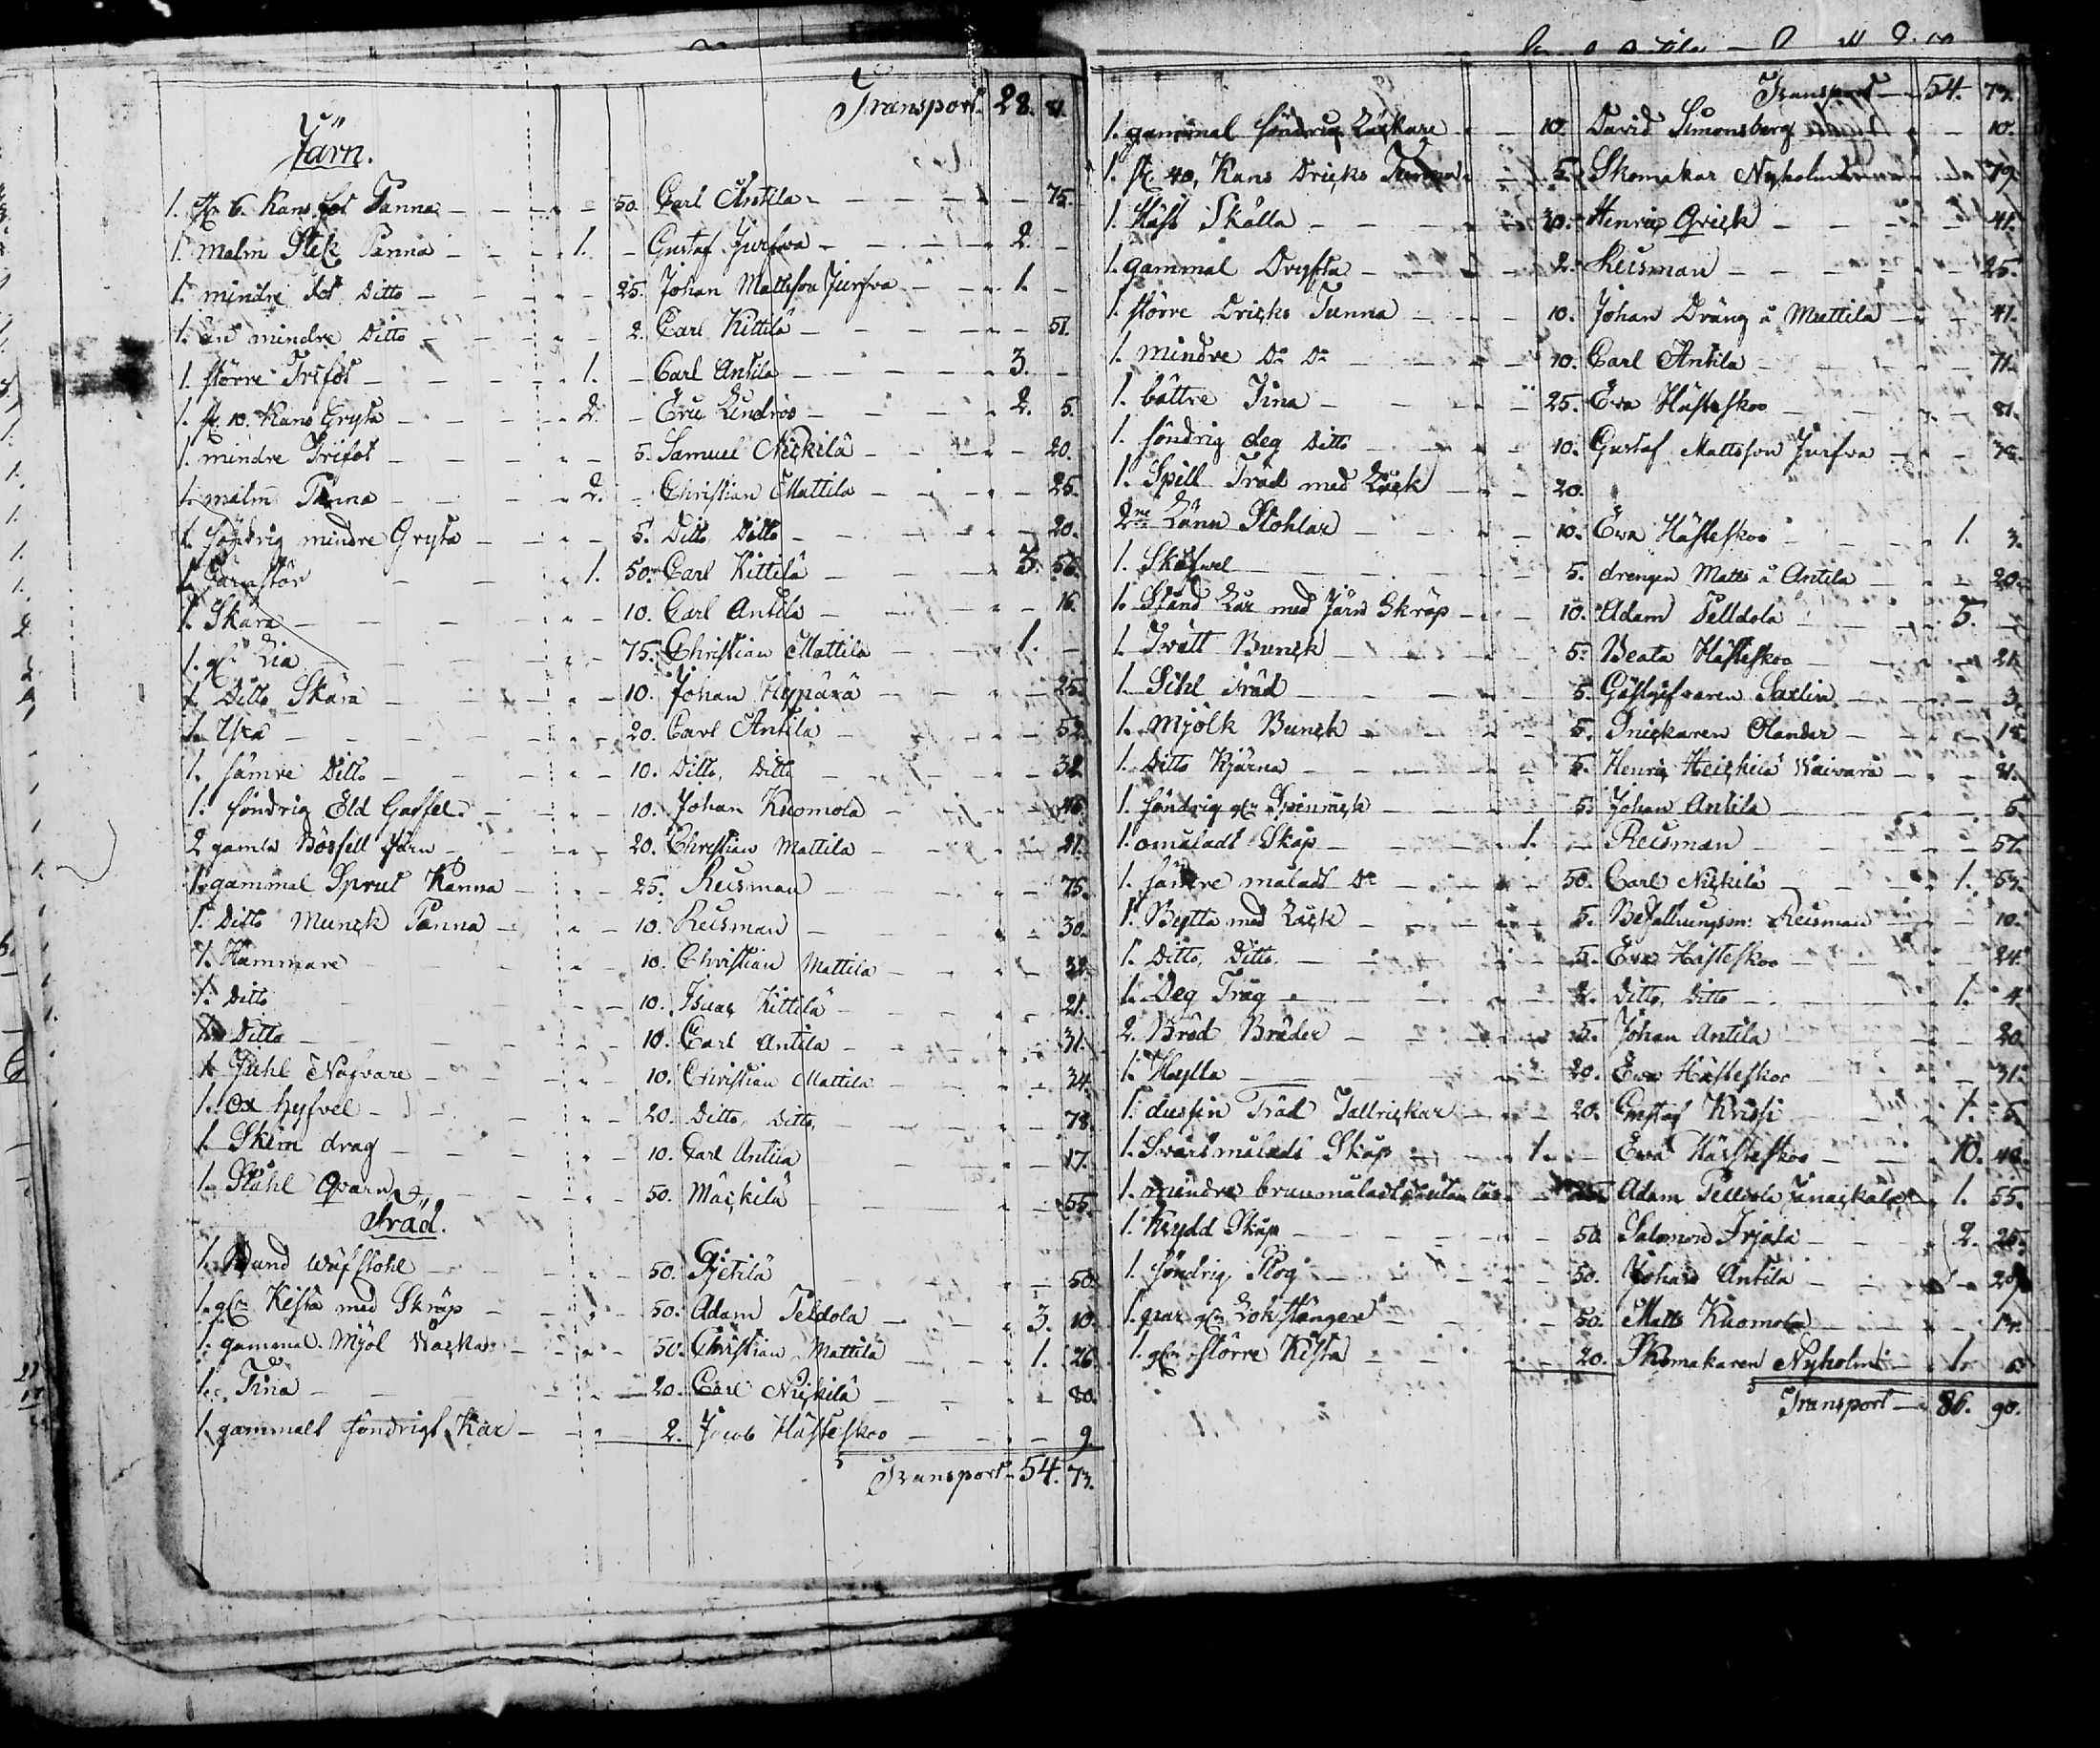 Transport 28. 81.
Järn.
1. st. 6. Kans fot Panna 50. Carl Antila 75.
1. malm Stek Panna 1. Gustaf Jurfva 2.
1. mindre fot Ditto 25. Johan Mattsson Jurfva 1.
1. än mindre Ditto 2. Carl Kittilä 51.
1. större Trifot 1. Carl Antila 3.
1. st. 10. Kans Gryta 2. Eva Lindroos 2. 5.
1. mindre Trifot 5. Samuel Nickilä 20.
1. malm Panna 2. Christian Mattila 25.
1. söndrig mindre Gryta 5. Ditto Ditto 20.
1. Järnstör 1. 50. Carl Kittilä 3. 56.
1. Skära 10. Carl Antila 16.
1. gl. Lia 75. Christian Mattila 1.
1. Ditto Skära 10. Johan Hypärä 25.
1. Yxa 20. Carl Antila 52.
1. sämre Ditto 10. Ditto, Ditto 32.
1. söndrig Eld Gaffel 10. Johan Kuomola 46.
2 gamla Bösfell Järn 20. Christian Mattila 21.
1. gammal Sprut Kanna 25. Reisman 75.
1. Ditto Munck Panna 10. Reisman 30.
1. Hammare 10. Christian Mattila 32.
1. Ditto 10. Isaac Kittilä 21.
1. Ditto 10. Carl Antila 31.
1. Juhl Nafvare 10. Christian Mattila 34.
1. Ox Hyfvel 20. Ditto, Ditto, 78.
1. Skim drag 10. Carl Antila 17.
1. Ståhl Qvarn 50. Mäckilä 55.
Träd.
1. Wäfstohl 50. Pjetilä 50.
1. gl. Kista med Skräp 50. Adam Peldola 3. 10.
1. gammal Mjöl Wacka 50. Christian Mattila 1. 26.
1. Tina 20. Carl Nickilä 80.
1. gammalt söndrigt Kar 2. Jacob Hästeskoo 9.
Transport 54. 73.
Transport 54. 73.
1. gammal söndrig Läckare 10. David Simonsberg 10.
1. st. 40, Kans Dricks Tunna 5. Skomakar Nyholm 79.
1. Häst Skälla 30. Henric Qvick 41.
1. gammal Dryfta 2. Reisman 25.
1. större Dricks Tunna 10. Johan Dräng å Mattila 41.
1. mindre Do Do 10. Carl Antila 71.
1. bättre Tina 25. Eva Hästeskoo 81.
1. söndrig deg Ditto 10. Gustaf Mattsson Jurfva 75.
1. Spill Träd med Låck 20.
2ne Länn Stohlar 10. Eva Hästeskoo 1. 3.
1. Skofwel 5. drengen Matts å Antila 20.
1. Stånd Kar med Järn Skräp 10. Adam Pelldola 5.
1. Twätt Bunck 5. Beata Hästeskoo 21.
1. Sihl Träd 5. Gästgifvaren Saxlin 3.
1. Mjölk Bunck 5. Snickaren Olander 18.
1. Ditto Kjärna 5. Henric Heickilä Waivara 21.
1. söndrig gl. Spinräck 5. Johan Antila 5.
1. omåladt Skåp 1. Reisman 57.
1. sämre måladt Do 50. Carl Nickilä 1. 53.
1. Bytta med Låck 5. Befallningsm: Reisman 10.
1. Ditto, Ditto 5. Eva Hästeskoo 24.
1. Deg Tråg 2. Ditto, Ditto 1. 4.
2. Bröd Bräder 5. Johan Antila 20.
1. Hylla 20. Eva Hästeskoo 31.
1. dussin Träd Tallrickar 20. Gustaf Krissi 1. 5.
1. Svart måladt Skåp 1. Eva Hästeskoo 10. 40.
1. mindre brunmåladt Do utan lås 25. Adam Peldola 1. 55.
1. Krydd Skåp 50. Salomon Irjala 2. 25.
1. söndrig Plog 50. Johan Antila 29.
1. par gl. Lokstänger 50. Matts Kuomola 17.
1. gl. större Kista 20. Skomakaren Nyholm 1. 5.
Transport 86. 90.